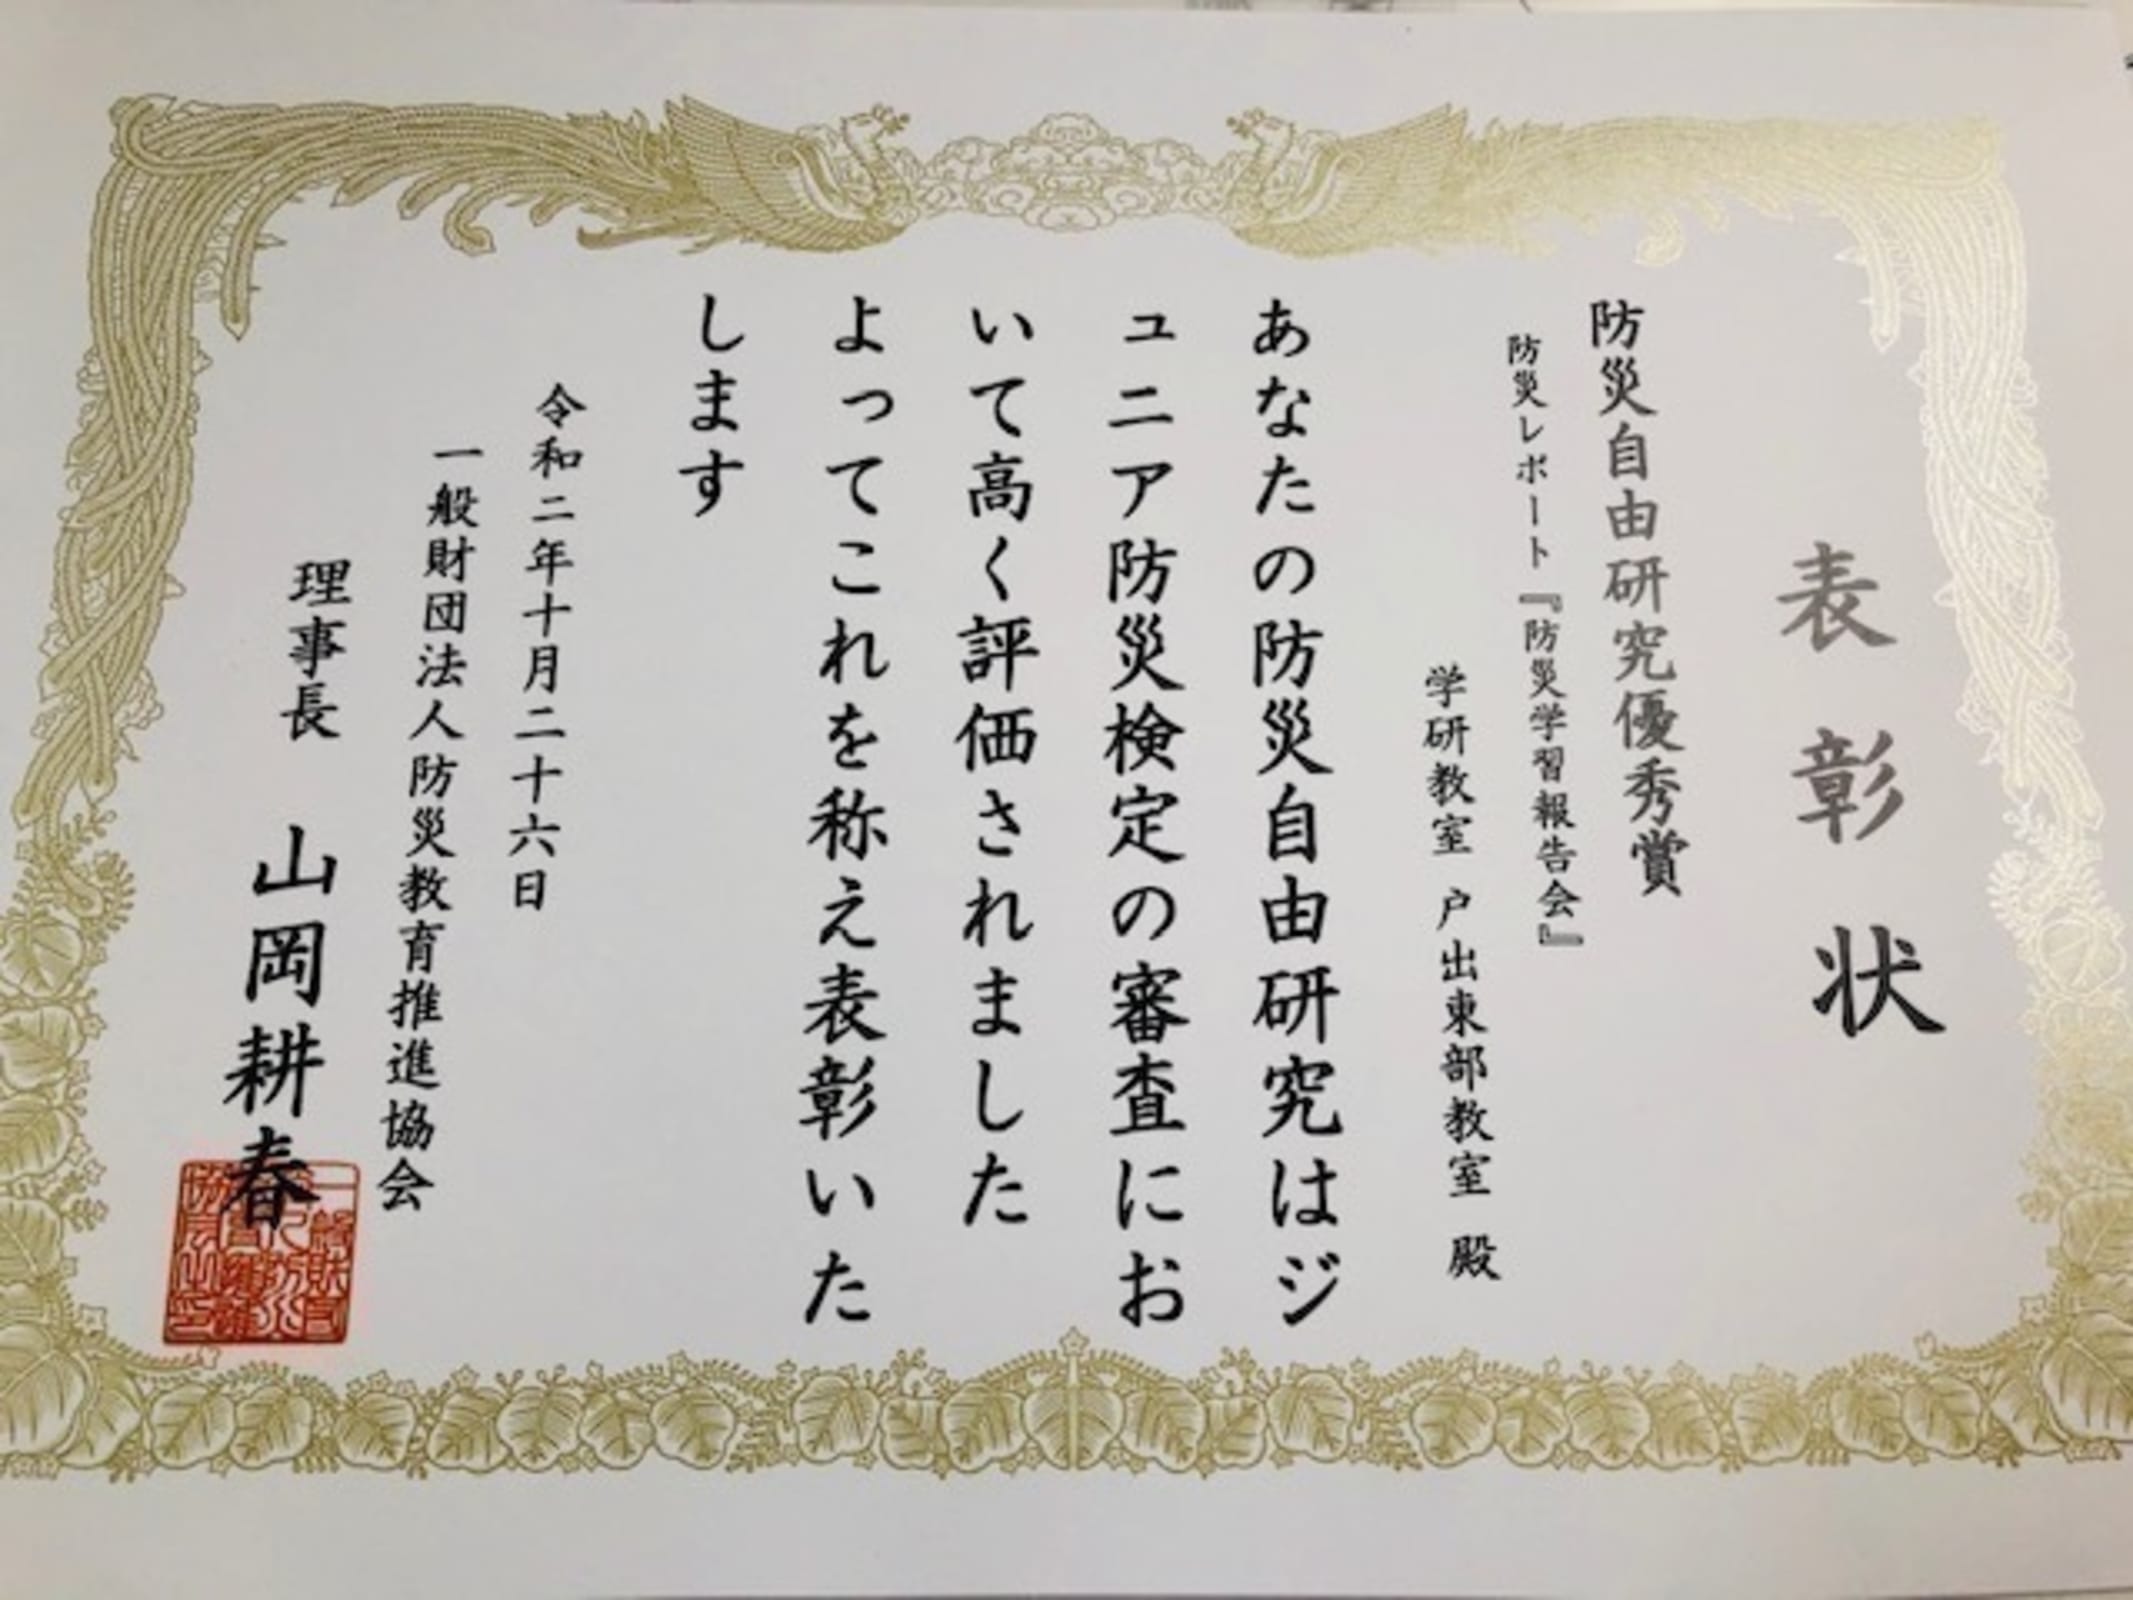 表彰状
防災自由研究優秀賞
防災レポート『防災学習報告会』
学研教室 戸出東部教室 殿
あなたの防災自由研究はジ
ュニア防災検定の審査にお
いて高く評価されました
よってこれを称え表彰いた
します
令和二年十月二十六日
一般財団法人防災教育推進協会
理事長 山岡耕春